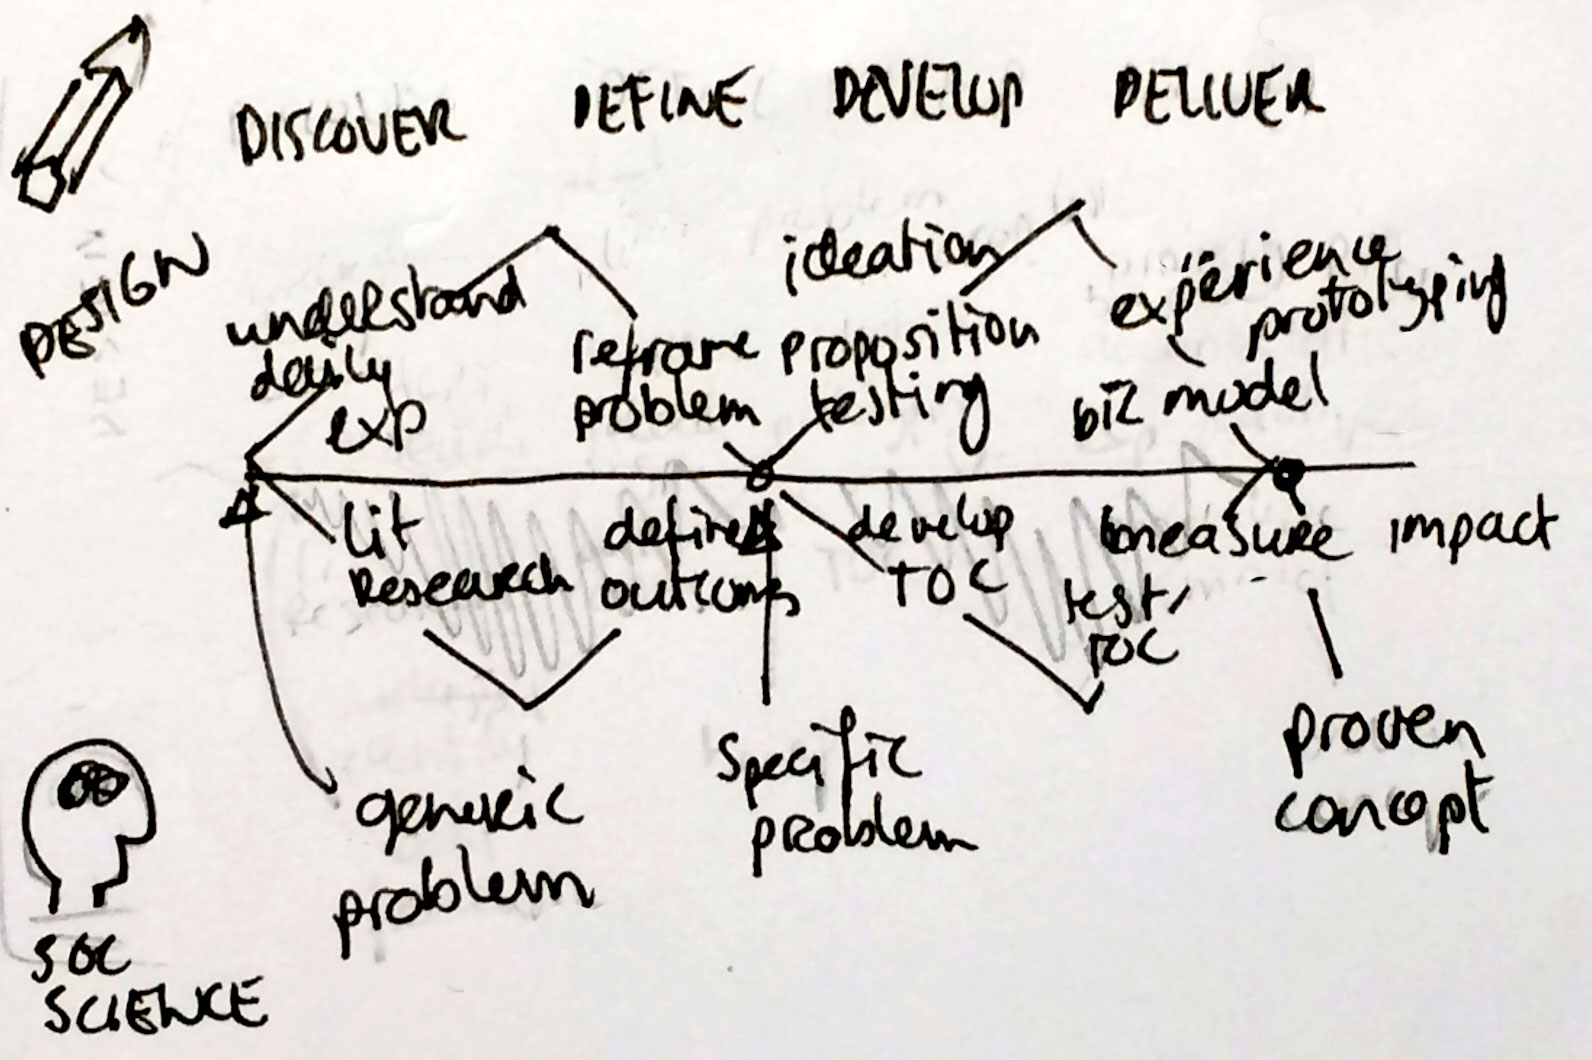 DISCOVER DEFINE DEVELOP DELIVER
DESIGN
understand
daily
exp
reframe
problem
ideation
proposition
testing
experience
prototyping
biz model
lit
research
define
outcomes
develop
TOC
test/
TOC
measure impact
generic
problem
specific
problem
proven
concept
SOC
SCIENCE